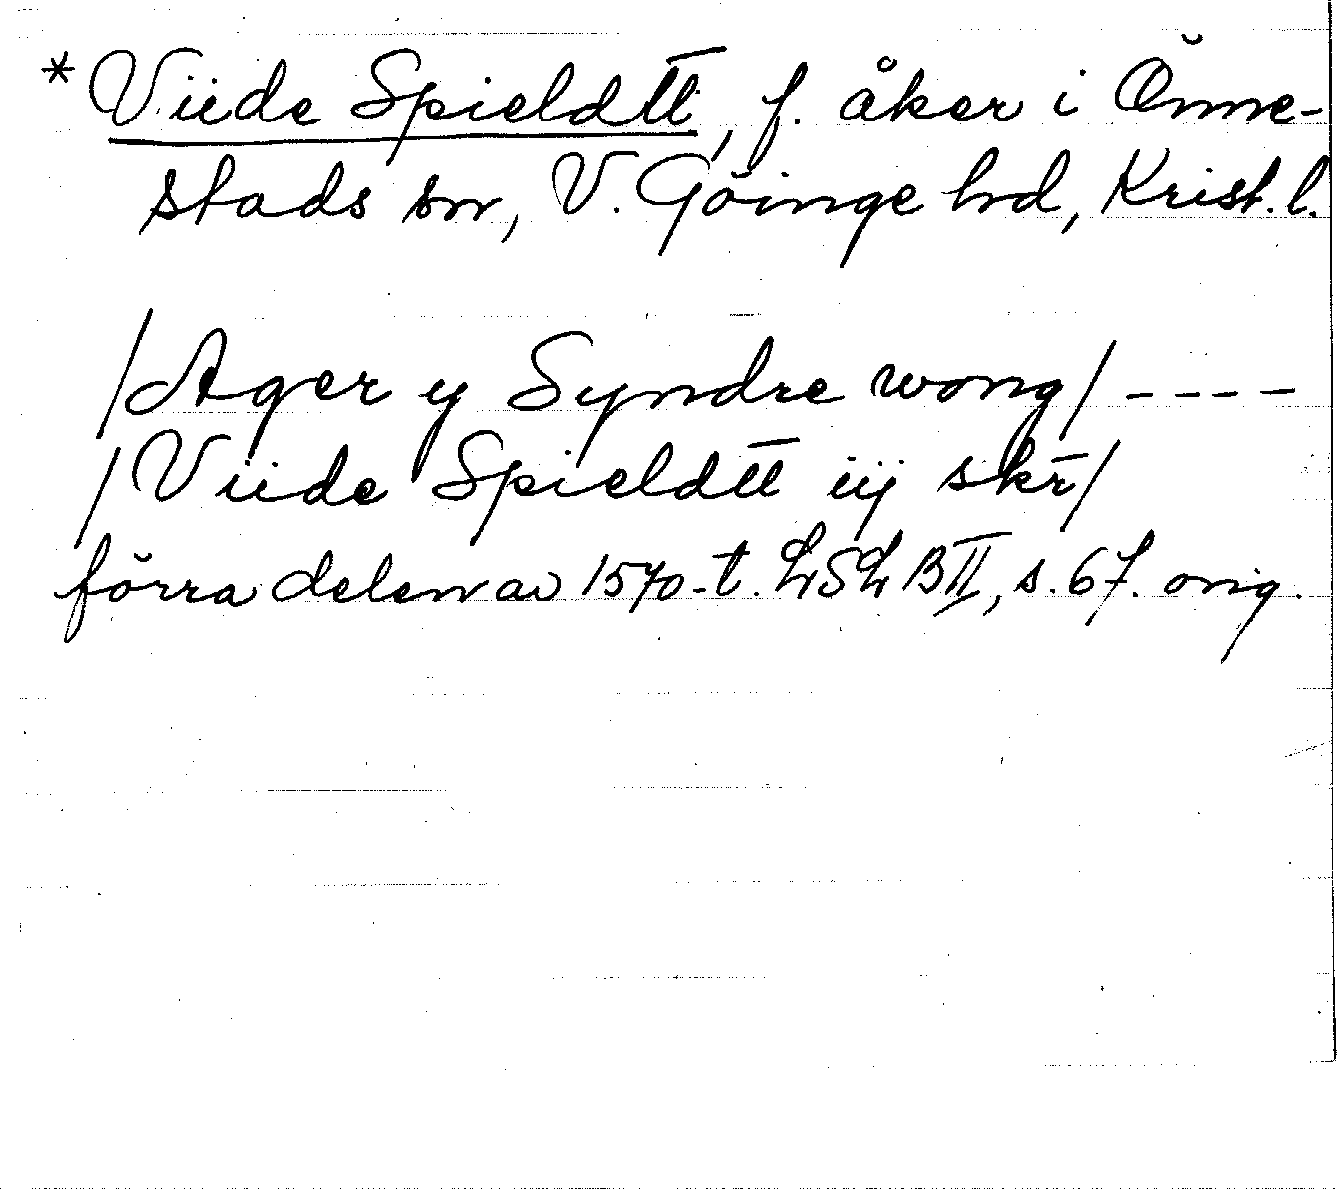 * Viide Spieldtt, f. åker i Önne-
stads sn, V. Göinge hd, Krist. l.
/Ager y Syndre wong/ ----
/Viide Spieldtt iij skr/
förra delen av 1570-t. LSL BII, s. 67. orig.